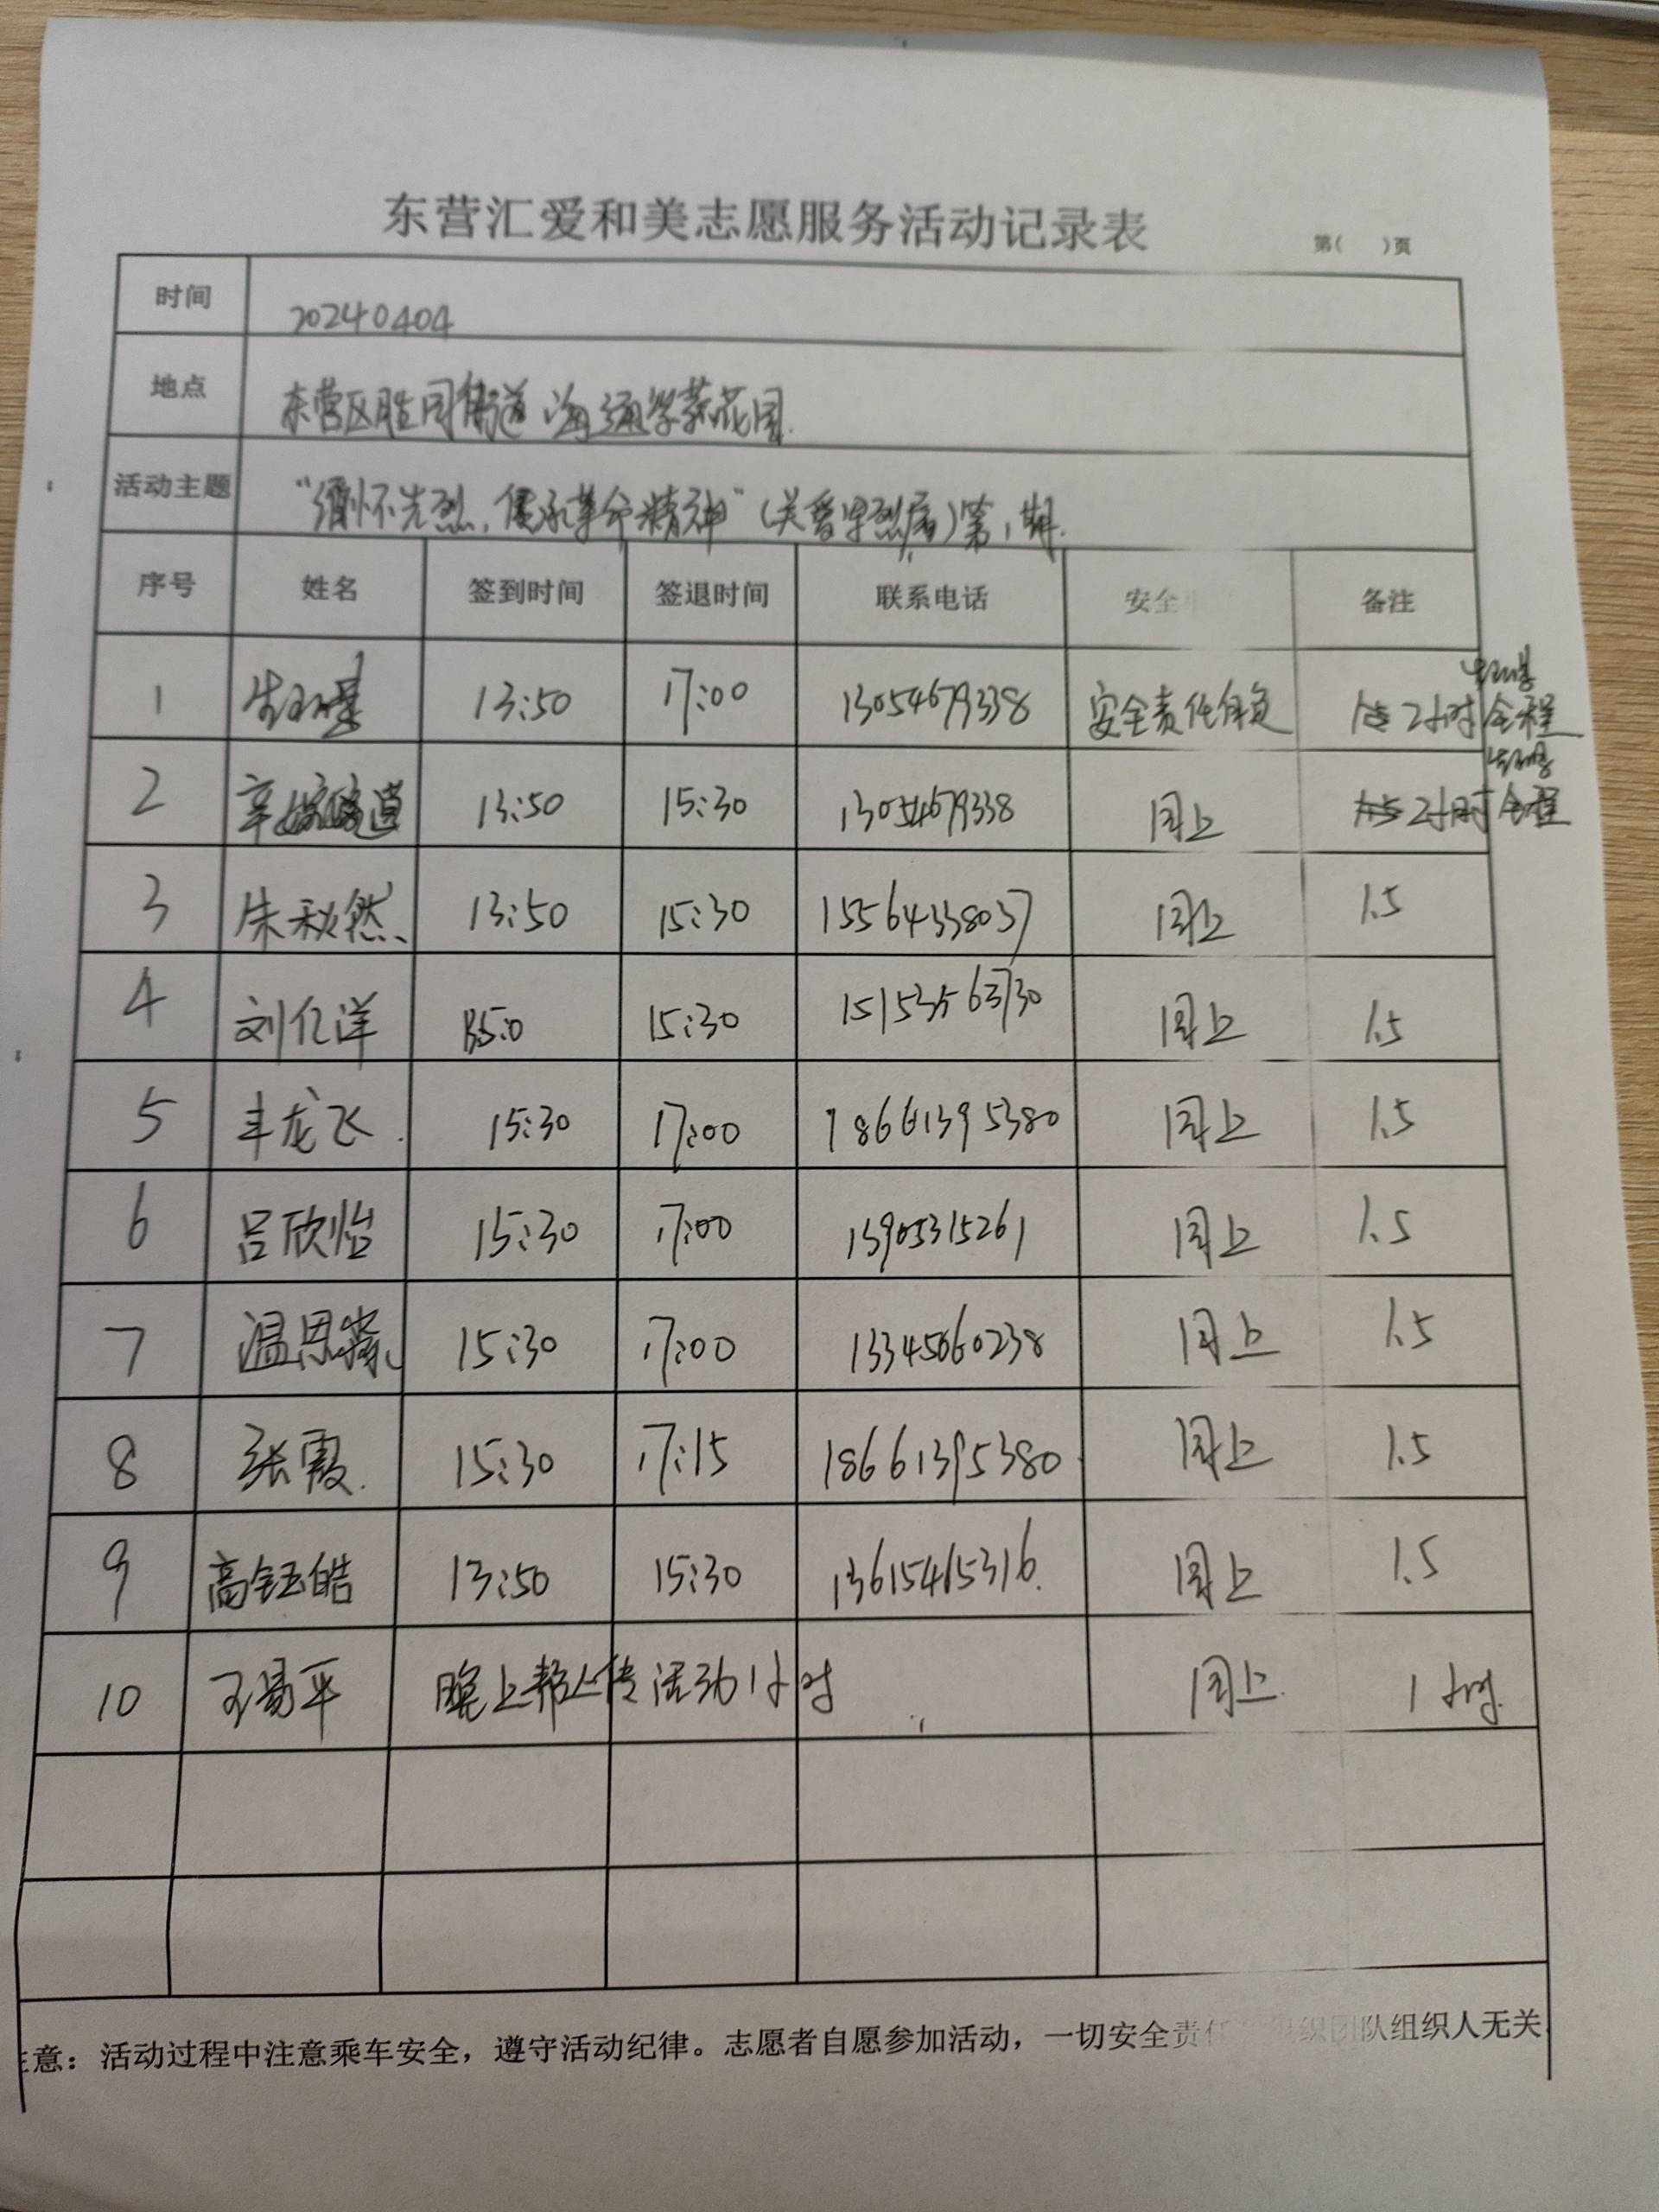 东营汇爱和美志愿服务活动记录表
第( )页
时间 20240404
地点 东营区胜园街道海通学苑花园.
活动主题 "缅怀先烈,传承革命精神"(关爱军烈属)第1期.
序号 姓名 签到时间 签退时间 联系电话 安全 备注
1 13:50 17:00 13054679338 安全责任自负 2小时 全程
2 13:50 15:30 13054679338 同上 2小时 全程
3 朱秋然 13:50 15:30 15564338037 同上 1.5
4 刘亿洋 15:30 同上 1.5
5 丰龙飞. 15:30 17:00 18661395380 同上 1.5
6 吕欣怡 15:30 17:00 13905315261 同上 1.5
7 温思 15:30 17:00 同上 1.5
8 张霞. 15:30 17:15 18661395380. 同上 1.5
9 高钰皓 13:50 15:30 13615465316. 同上 1.5
10 王易平 晚上帮上传活动1小时 同上. 1小时.
意:活动过程中注意乘车安全,遵守活动纪律。志愿者自愿参加活动,一切安全责任 组织团队组织人无关